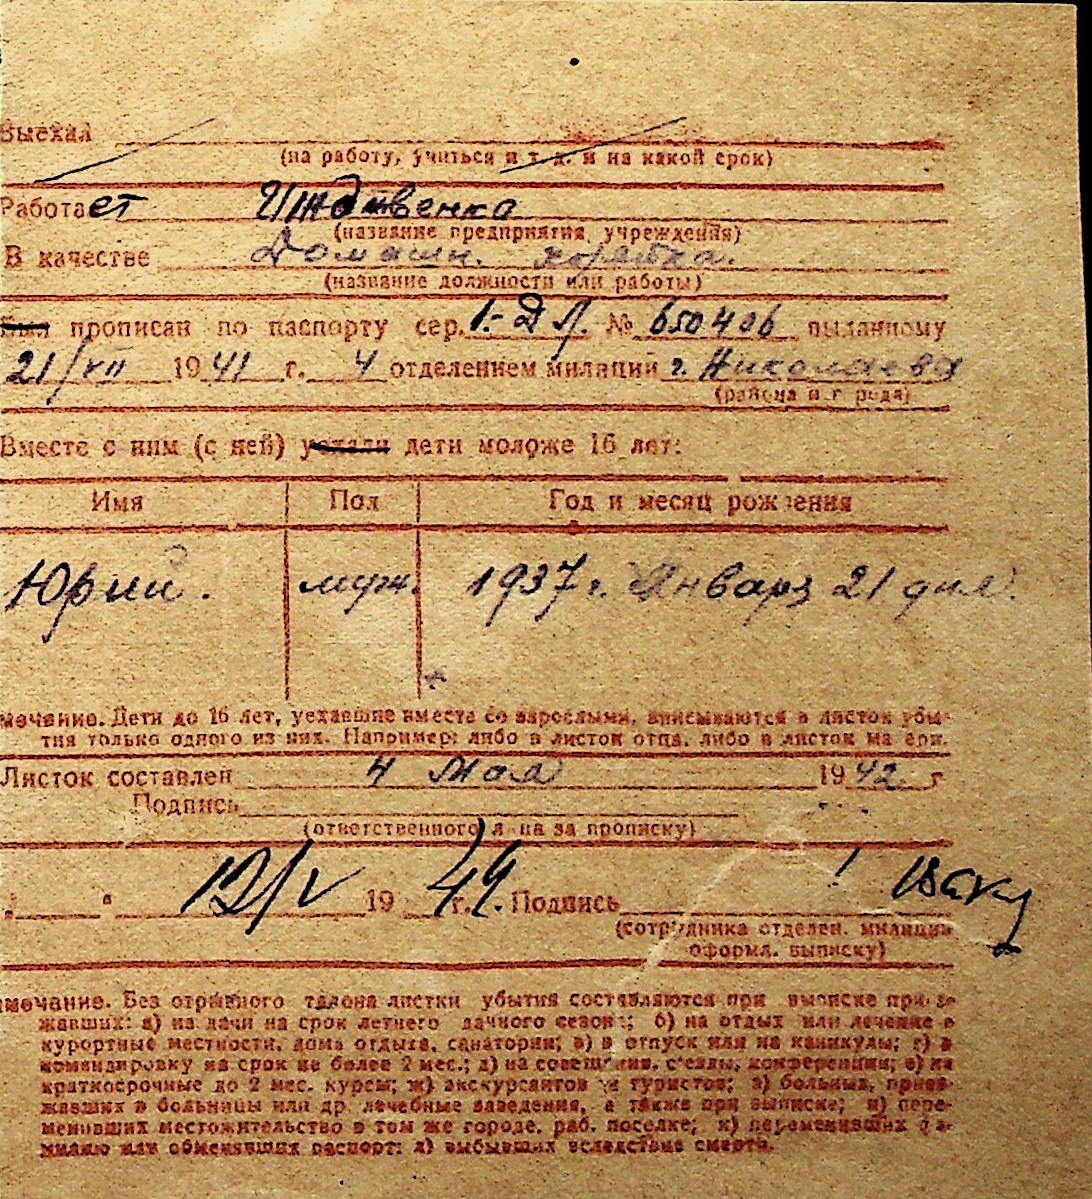 Выехал
(на работу, учиться и т. д. и на какой срок)
Работает Иждивенка
(название предприятия, учреждения)
В качестве Домашн. хозяйка.
(название должности или работы)
Был прописан по паспорту сер. 1-ДЛ. № 650406 выданному
21/VII 1941 г. 4 отделением милиции г. Николаева
(района и г рода)
Вместе с ним (с ней) уехали дети моложе 16 лет:
Имя Пол Год и месяц рождения
Юрий. муж. 1937 г. Января 21 дня.
мечание. Дети до 16 лет, уехавшие вместе со взрослыми, вписываются в листок убы-
тия только одного из них. Например: либо в листок отца, либо в листок ма ери.
Листок составлен 4 Мая 1942 г
Подпись
(ответственного л на за прописку)
12/V 19 г. Подпись
(сотрудника отделен. милиции
оформл. выписку)
мечание. Без отрывного талона листки убытия составляются при выписке приез-
жавших: а) на дачи на срок летнего дачного сезона; б) на отдых или лечение в
курортные местности, дома отдыха, санатории; в) в отпуск или на каникулы; г) в
командировку на срок не более 2 мес.; д) на совещания, съезды, конференции; е) на
краткосрочные до 2 мес. курсы; ж) экскурсантов и туристов; з) больных, приез-
жавших в больницы или др. лечебные заведения, а также при выписке; и) пере-
менивших местожительство в том же городе, раб. поселке; к) переменивших фа-
милию или обменявших паспорт; л) выбывших вследствие смерти.